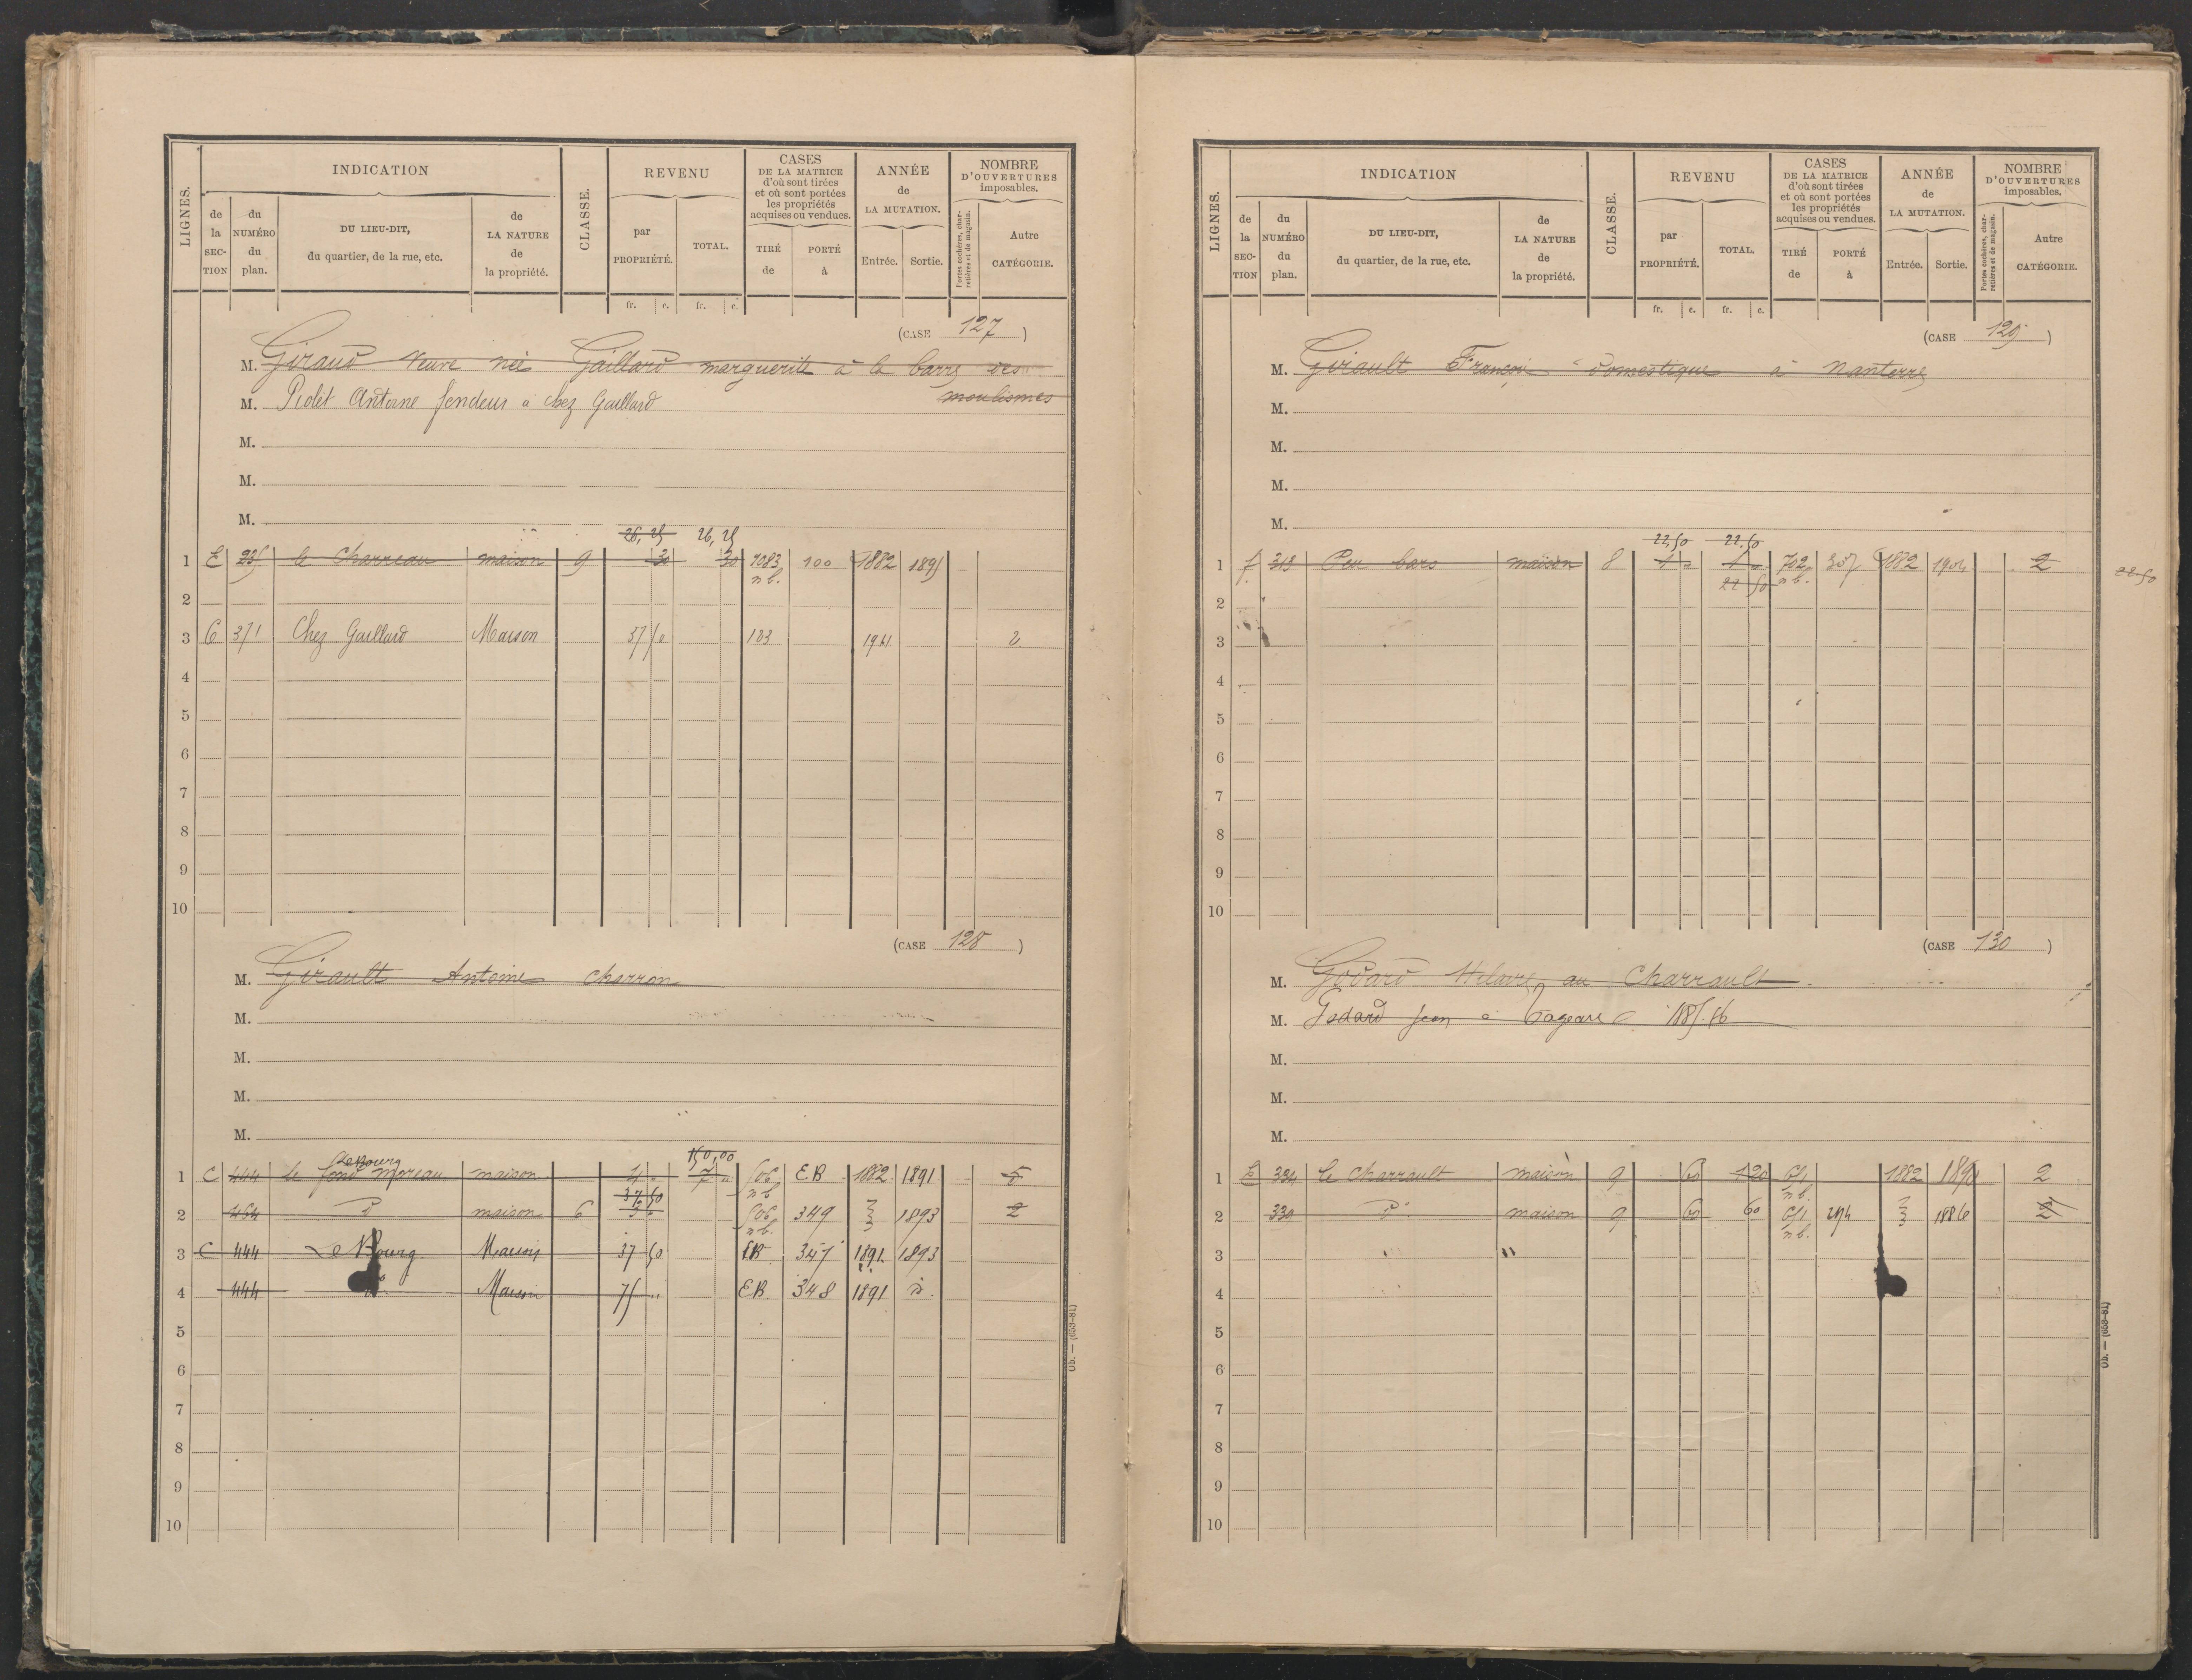 LIGNES.
INDICATION
CLASSE.
REVENU
CASES
DE LA MATRICE
d'où sont tirées
et où sont portées
les propriétés
acquises ou vendues.
ANNÉE
de
LA MUTATION.
NOMBRE
D'OUVERTURES
imposables.
de
la
SEC-
TION
du
NUMÉRO
du
plan.
DU LIEU-DIT,
du quartier, de la rue, etc.
de
LA NATURE
de
la propriété.
par
PROPRIÉTÉ.
TOTAL.
TIRÉ
de
PORTÉ
à
Entrée.
Sortie.
Portes cochères, char-
retières et de magasin.
Autre
CATÉGORIE.
fr. c. fr. c.
(CASE 127)
M. Giraud Veuve née Gaillard marguerite à la barre des
moulismes
M. Piolet Antoine fendeur à chez Gaillard
M.
M.
M.
26,25 26,25
1 E 235 le Charreau maison 9 30 30 1083 100 1882 1895
n b.
2
3 C 371 Chez Gaillard Maison 37 50 123 1941 2
4
5
6
7
8
9
10
(CASE 128)
M. Girault Antoine charron
M.
M.
M.
M.
Le Bourg 150,00
1 C 444 le fond moreau maison 4 7 506 EB 1882 1891 5
n b
37 50
2 454 d° maison 6 3 506 349 1893 2
n b.
3 C 444 Le Bourg Maison 37 50 EB 347 1891 1893
4 444 Maison 75 EB 348 1891 d°
5
6
7
8
9
10
Ob. — (653-81)
LIGNES.
INDICATION
CLASSE.
REVENU
CASES
DE LA MATRICE
d'où sont tirées
et où sont portées
les propriétés
acquises ou vendues.
ANNÉE
de
LA MUTATION.
NOMBRE
D'OUVERTURES
imposables.
de
la
SEC-
TION
du
NUMÉRO
du
plan.
DU LIEU-DIT,
du quartier, de la rue, etc.
de
LA NATURE
de
la propriété.
par
PROPRIÉTÉ.
TOTAL.
TIRÉ
de
PORTÉ
à
Entrée.
Sortie.
Portes cochères, char-
retières et de magasin.
Autre
CATÉGORIE.
fr. c. fr. c.
(CASE 129)
M. Girault François domestique à nanterre
M.
M.
M.
M.
22,50 22,50
1 f 313 Peu bars maison 8 702 357 1882 1904 2 22 50
22 50 n b.
2
3
4
5
6
7
8
9
10
(CASE 130)
M. Godard Hilaire au Charrault
M. Godard Jean à 1885.86
M.
M.
M.
1 E 334 le Charrault maison 9 60 120 651 1882 1890 2
n b.
2 330 d° maison 9 60 60 651 294 1886 2
n b.
3
4
5
6
7
8
9
10
Ob. — (653-81)